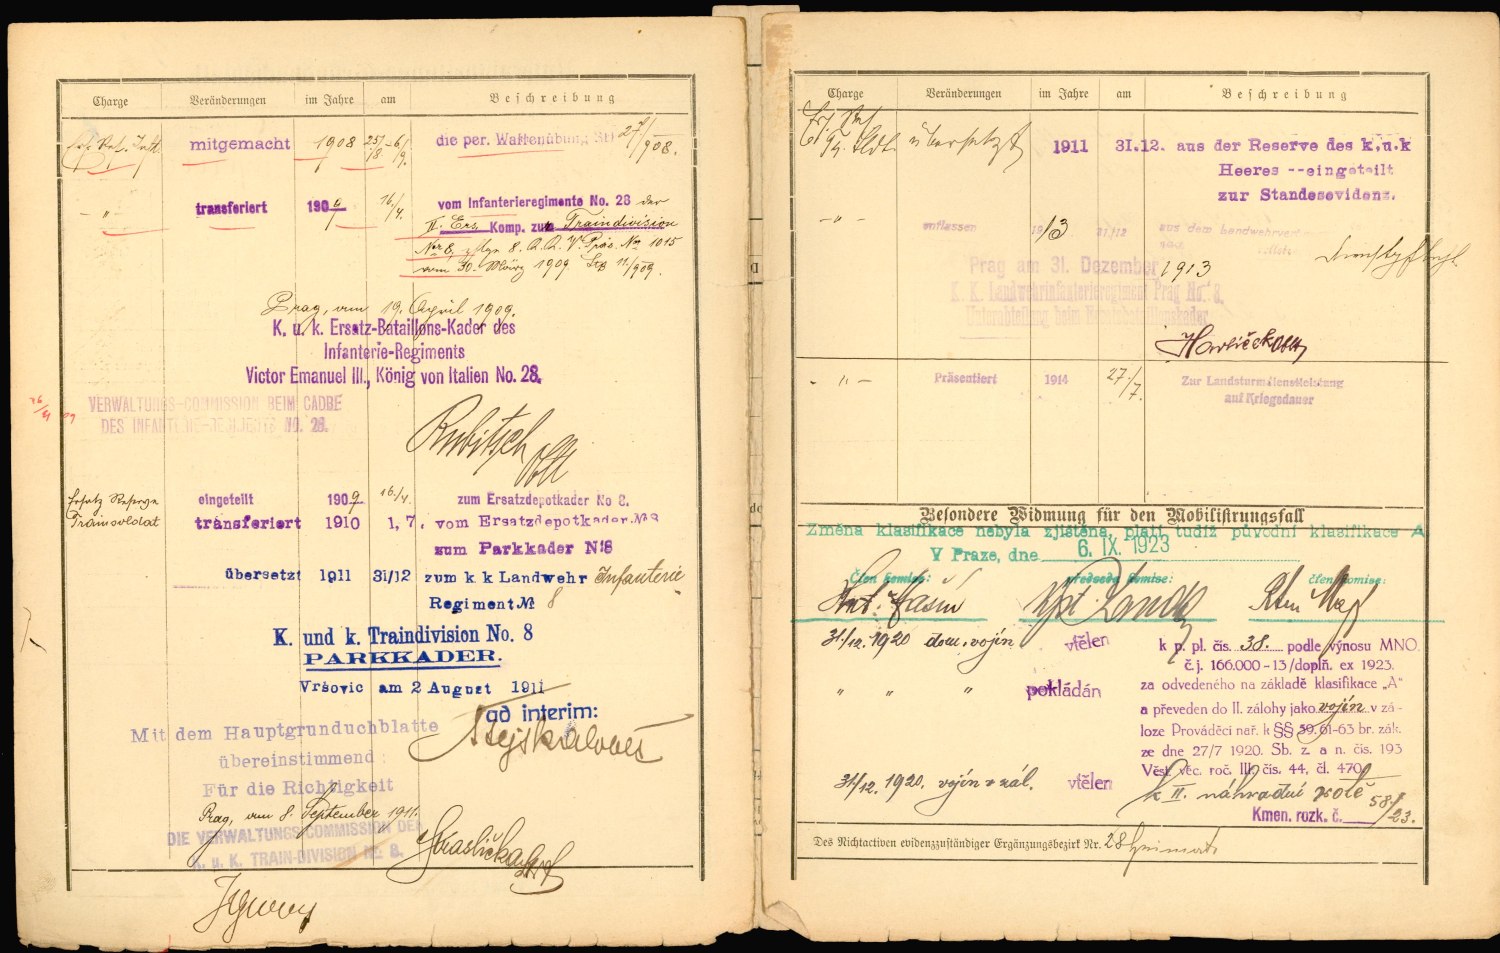 Charge Veränderungen im Jahre am Beschreibung
mitgemacht 1908 25/8 - 6/9. die per. Waffenübung 27/908.
- " - transferiert 1909 16/4. vom Infanterieregimente No. 28 der
II. Ers. Komp. zur Traindivision
Nr 8, 8. No 1015
vom 30. März 1909. 11/909.
Prag, vom 19. April 1909.
K. u. k. Ersatz-Bataillons-Kader des
Infanterie-Regiments
Victor Emanuel III., König von Italien No. 28.
VERWALTUNGS-COMMISSION BEIM CADRE
DES INFANTERIE-REGIMENTS No. 28.
Rubitsch
Ersatz Reserve eingeteilt 1909 16/4. zum Ersatzdepotkader No 8.
Trainsoldat transferiert 1910 1, 7. vom Ersatzdepotkader № 8
zum Parkkader № 8
übersetzt 1911 31/12 zum k. k Landwehr Infanterie
Regiment № 8
K. und k. Traindivision No. 8
PARKKADER.
Vršovic am 2 August 1911
ad interim:
Mit dem Hauptgrundbuchblatte
übereinstimmend:
Für die Richtigkeit
Prag, vom 8. September 1911.
DIE VERWALTUNGS-COMMISSION DER
K. u. K. TRAIN-DIVISION No. 8.
Charge Veränderungen im Jahre am Beschreibung
übersetzt 1911 31.12. aus der Reserve des k.u.k
Heeres -- eingeteilt
zur Standesevidenz.
- " - entlassen 1913 31/12 aus dem Landwehrver
Dienstpflicht
Prag am 31. Dezember 1913
K. K. Landwehrinfanterieregiment Prag No. 8.
Havlíček
- " - Präsentiert 1914 27./7. Zur Landsturmdienstleistung
auf Kriegsdauer
Besondere Widmung für den Mobilisirungsfall
Změna klasifikace nebyla zjištěna, platí tudíž původní klasifikace A
V Praze, dne 6. IX. 1923
Člen komise: předseda komise: člen komise:
31./12. 1920 dom. vojín vtělen k p. pl. čís. 38. podle výnosu MNO.
č. j. 166.000-13/doplň. ex 1923.
" " " pokládán za odvedeného na základě klasifikace „A"
a převeden do II. zálohy jako vojín v zá-
loze Prováděcí nař. k §§ 59. 61-63 br. zák.
ze dne 27/7 1920. Sb. z. a n. čís. 193
Věst. věc. roč. III. čís. 44, čl. 470.
31/12. 1920. vojín v zál. vtělen k II. náhradní rotě
Kmen. rozk. č. 58/23.
Des Nichtactiven evidenzzuständiger Ergänzungsbezirk Nr. 28